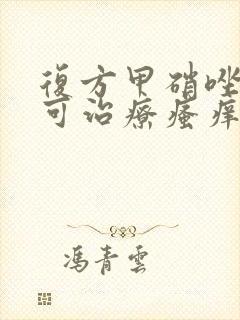 復方甲硝唑
可治療瘙痒
馮青雲